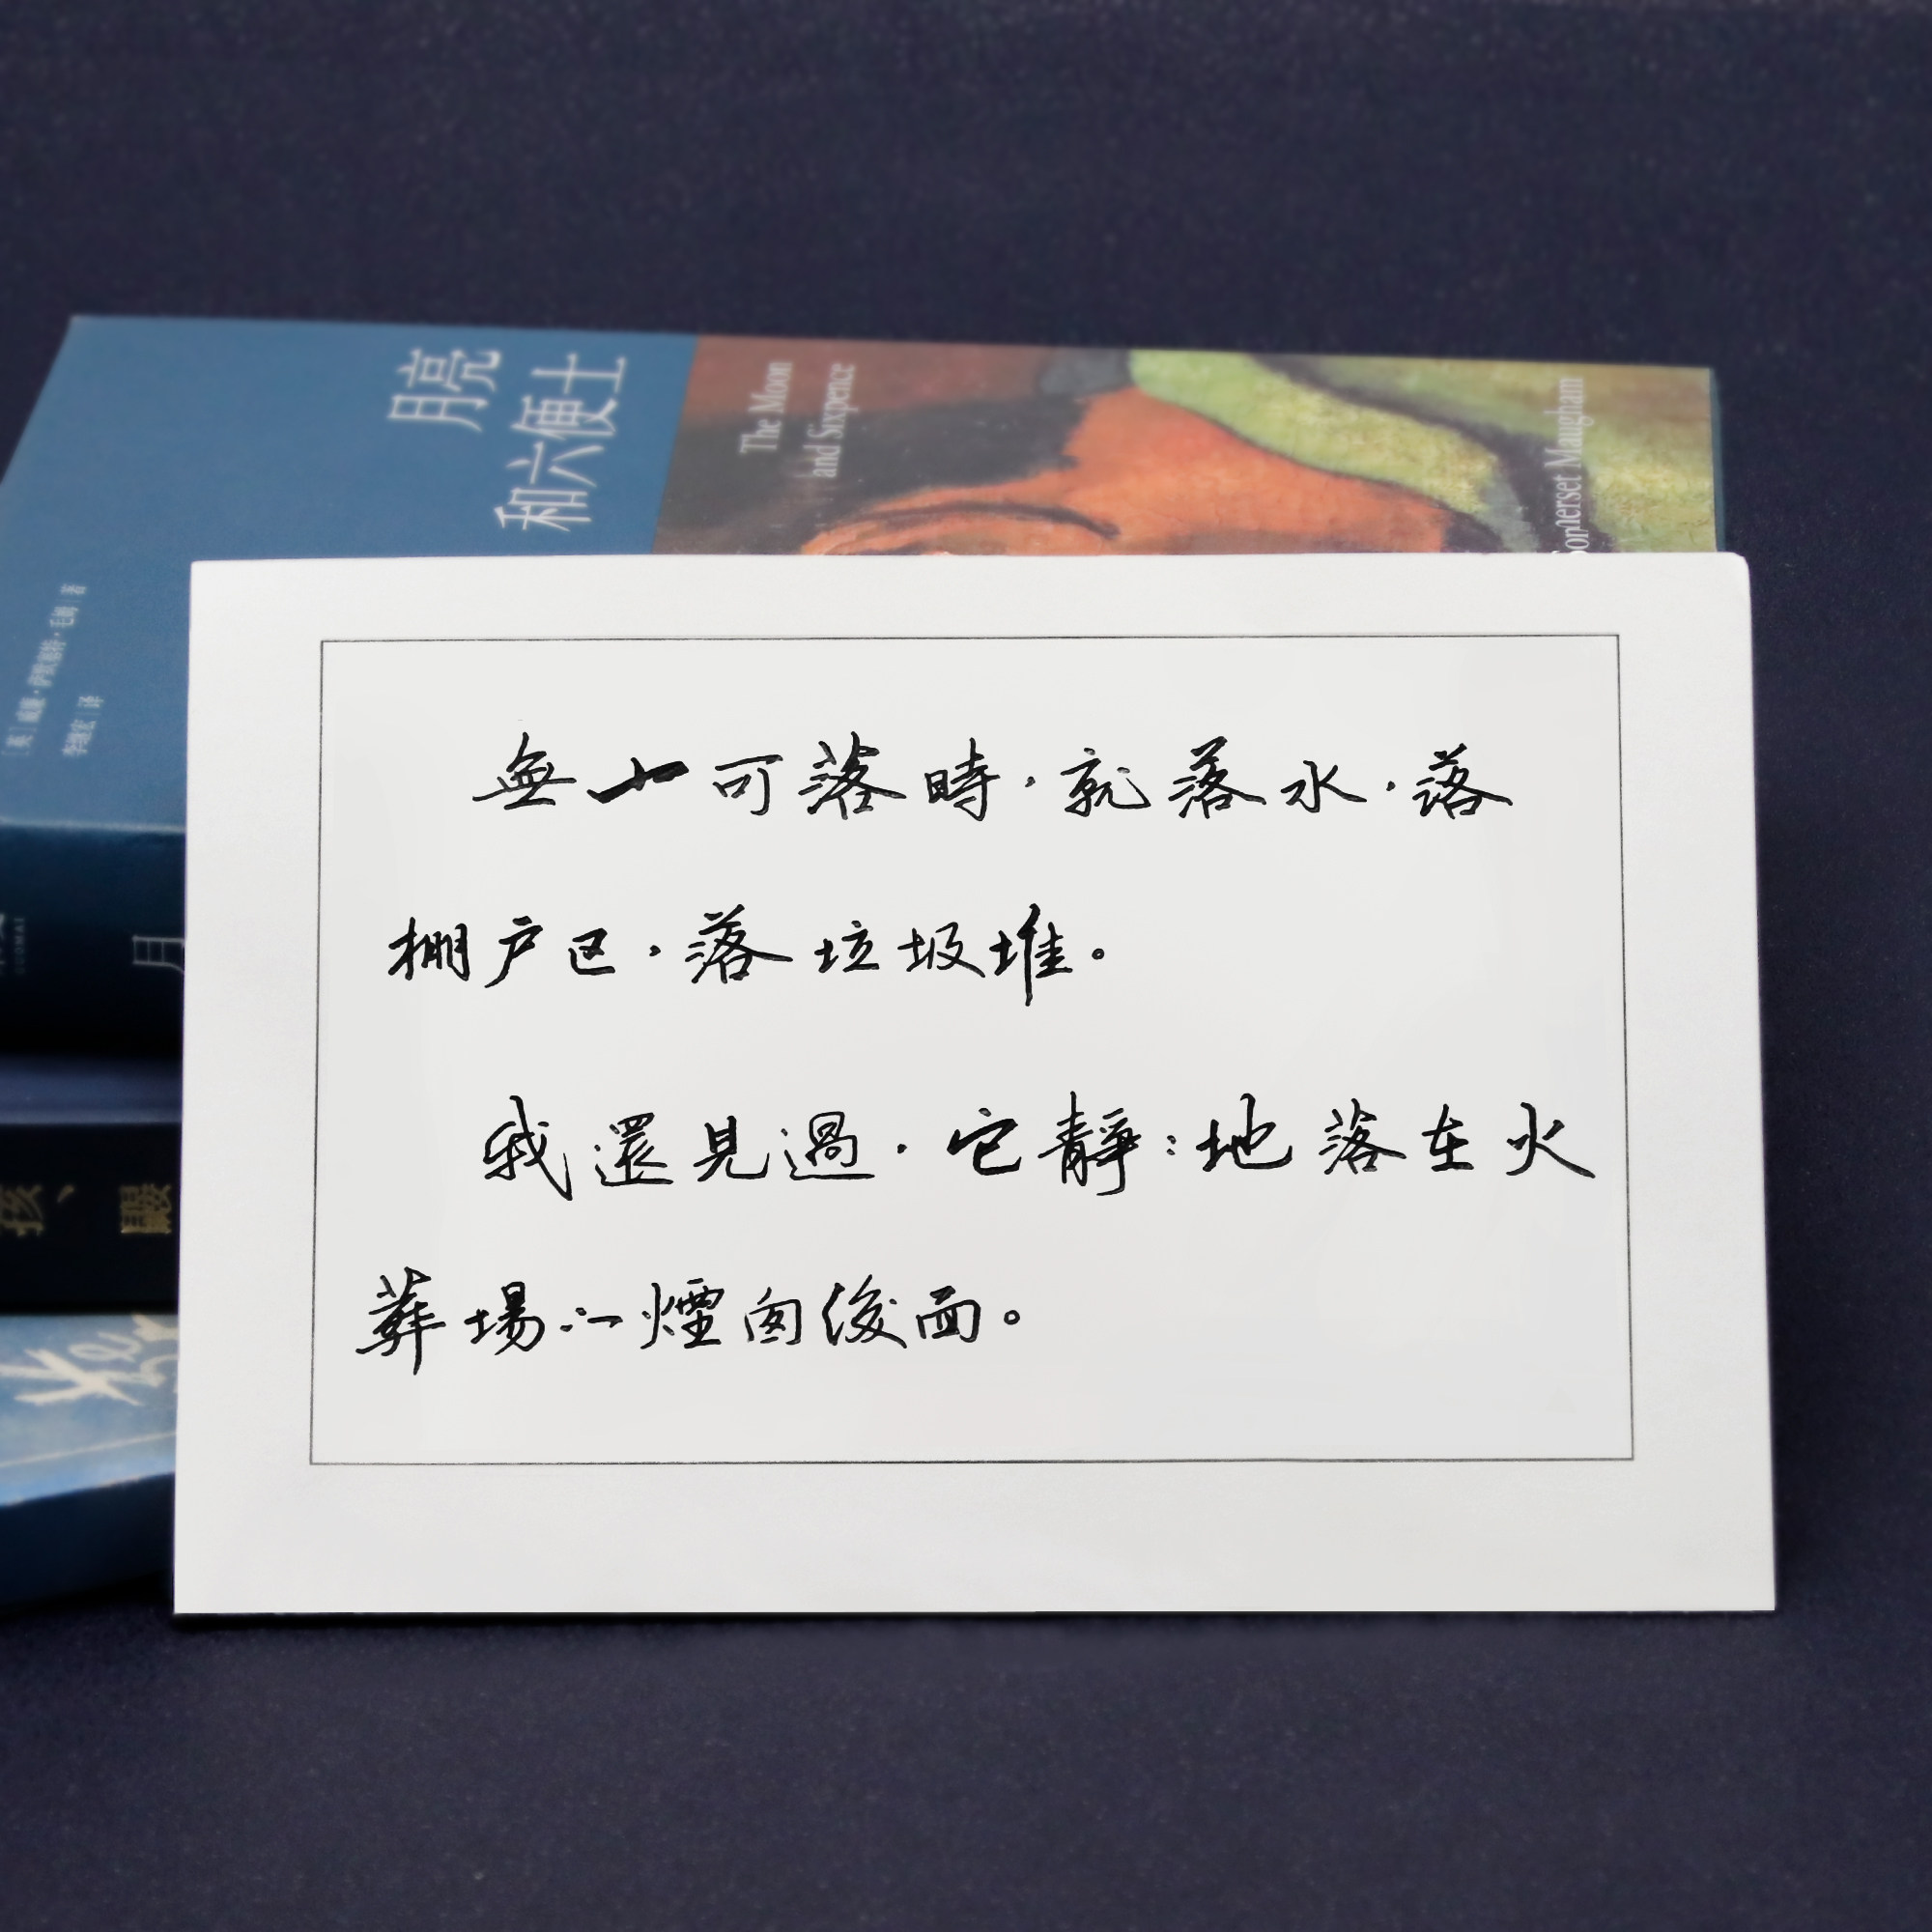 月亮
和六便士
The Moon
and Sixpence
Somerset Maugham
[英]威廉·萨默塞特·毛姆|著
李继宏|译
月
無山可落時，就落水，落
棚户区，落垃圾堆。
我還見過，它靜:地落在火
葬場的煙囪後面。
孩、